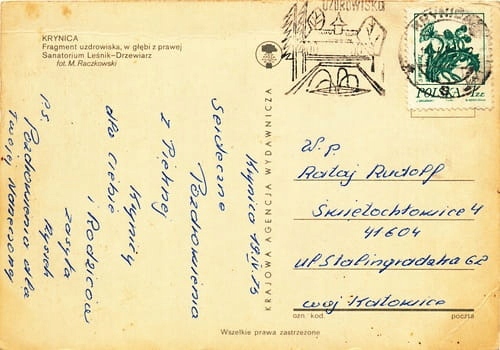 KRYNICA
Fragment uzdrowiska, w głębi z prawej
Sanatorium Leśnik-Drzewiarz
fot. M. Raczkowski
UZDROWISKO
KRYNICA
POLSKA
1 ZŁ
KRAJOWA AGENCJA WYDAWNICZA
Krynica
Serdeczne
Pozdrowienia
z Pięknej
Krynicy
dla Ciebie
i Rodziców
zasyła
Rysiek
P.S.
Pozdrowienia dla
Twojej narzeczony
W.P.
Rataj Rudolf
Świętochłowice 4
41604
ul. Stalingradzka 62
woj Katowice
ozn. kod.
poczta
Wszelkie prawa zastrzeżone